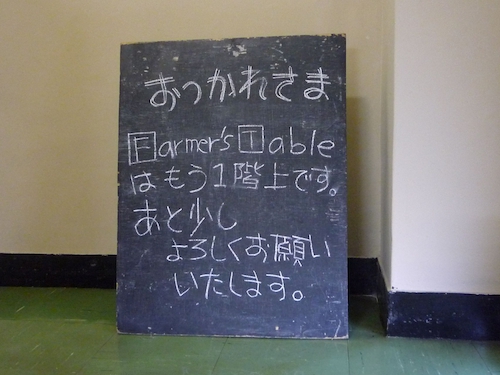 おつかれさま
Farmer's Table
はもう1階上です。
あと少し
よろしくお願い
いたします。